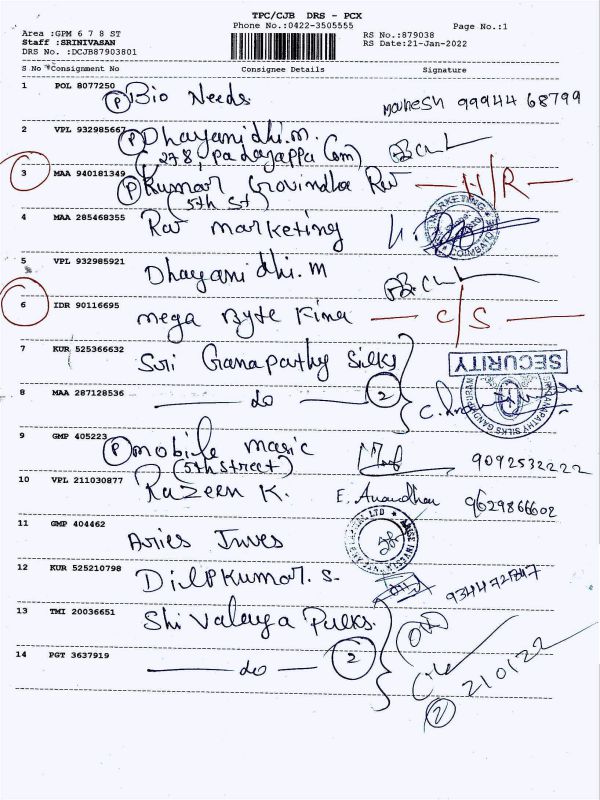 TPC/CJB DRS - PCX
Phone No.:0422-3505555
Page No.:1
Area :GPM 6 7 8 ST
RS No.:879038
Staff :SRINIVASAN
RS Date:21-Jan-2022
DRS No. :DCJB87903801
S No Consignment No Consignee Details Signature
1 POL 8077250 P Bio Needs 99944 68799
2 VPL 932985667 P Dhayanidhi.m.
(278, padayappa Com)
3 MAA 940181349 P Kumar Govindha Raj H/R
(5th St)
4 MAA 285468355 Raj marketing
5 VPL 932985921 Dhayanidhi.m
6 IDR 90116695 mega Byte C/S
7 KUR 525366632 Sri Ganapathy Silks
SECURITY
8 MAA 287128536 do 2
9 GMP 405223 P mobile magic 9092532222
(5th Street)
10 VPL 211030877 Razeen K. E. Anandhan 9629866602
11 GMP 404462 Aries Inves
12 KUR 525210798 DilpKumar.S.
13 TMI 20036651
14 PGT 3637919 do 2
210122
2